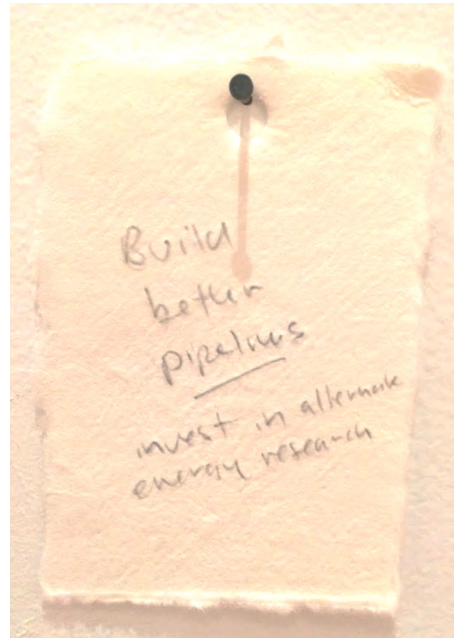 Build
better
pipelines
invest in alternate
energy research